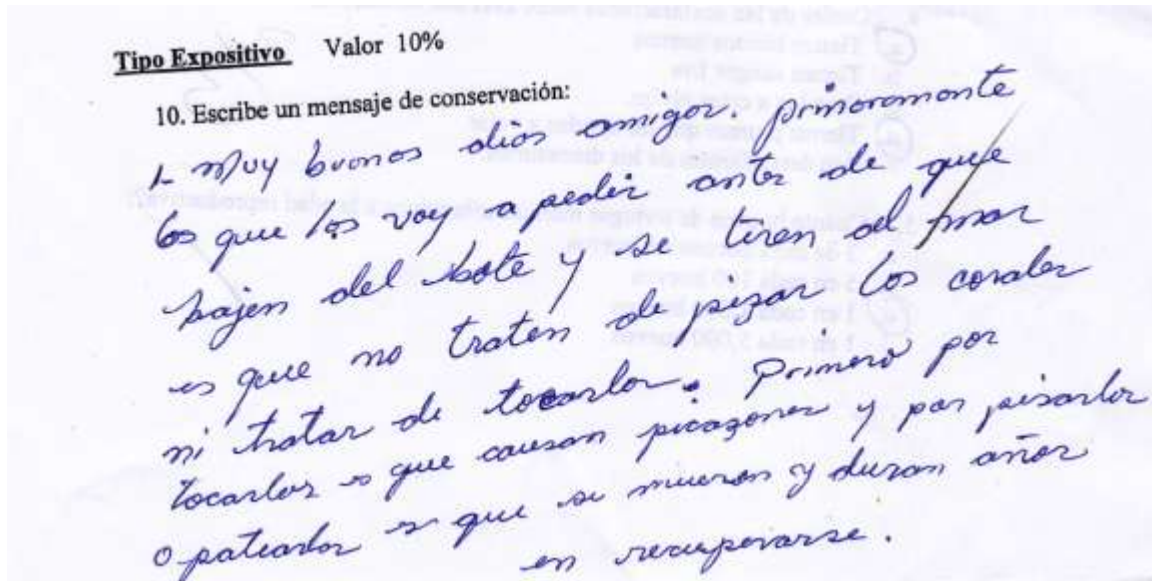 Tipo Expositivo Valor 10%
10. Escribe un mensaje de conservación:
1- Muy buenos dias amigos. primeramente
los que los voy a pedir antes de que
bajen del bote y se tiren al mar
es que no traten de pizar los corales
ni tratar de tocarlos. Primero por
tocarlos es que causan picazones y por pisarlos
o patearlos es que se mueren y duran años
en recuperarse.